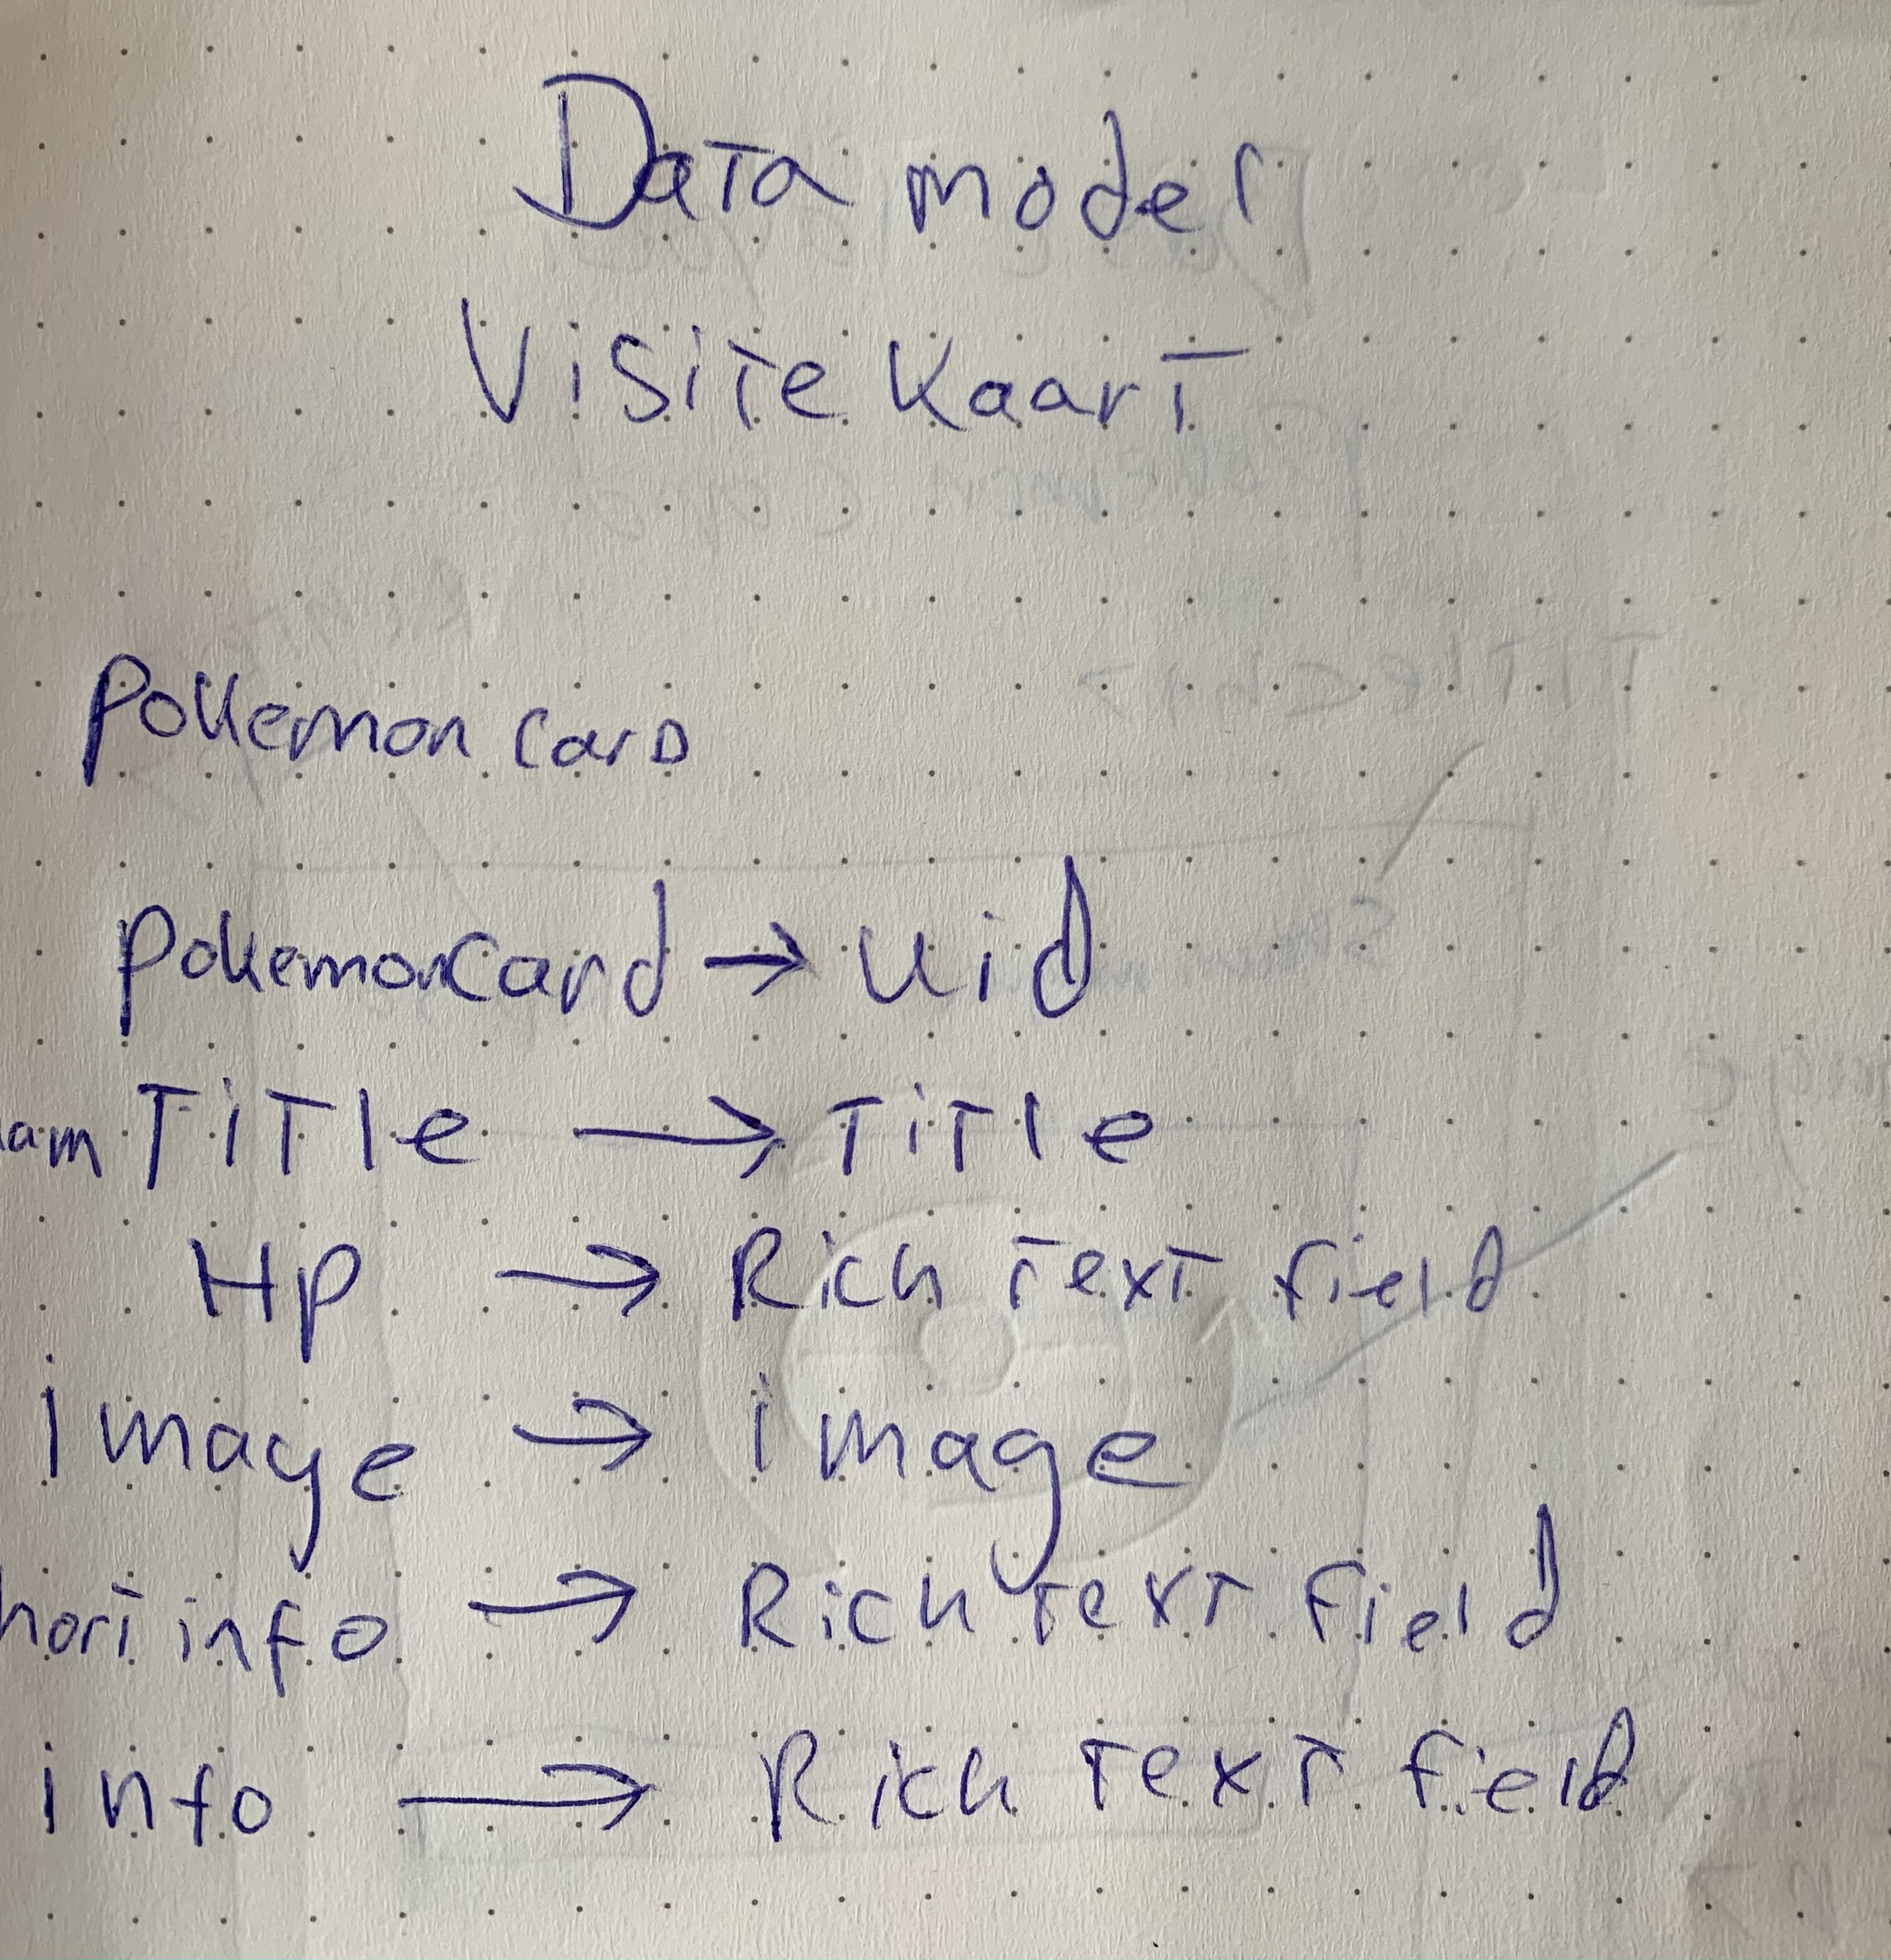 Data model
Visite kaart
Pokemon card
Pokemoncard → uid
am Title → Title
Hp → Rich text field
image → image
hort info → Rich text field
info → Rich text field